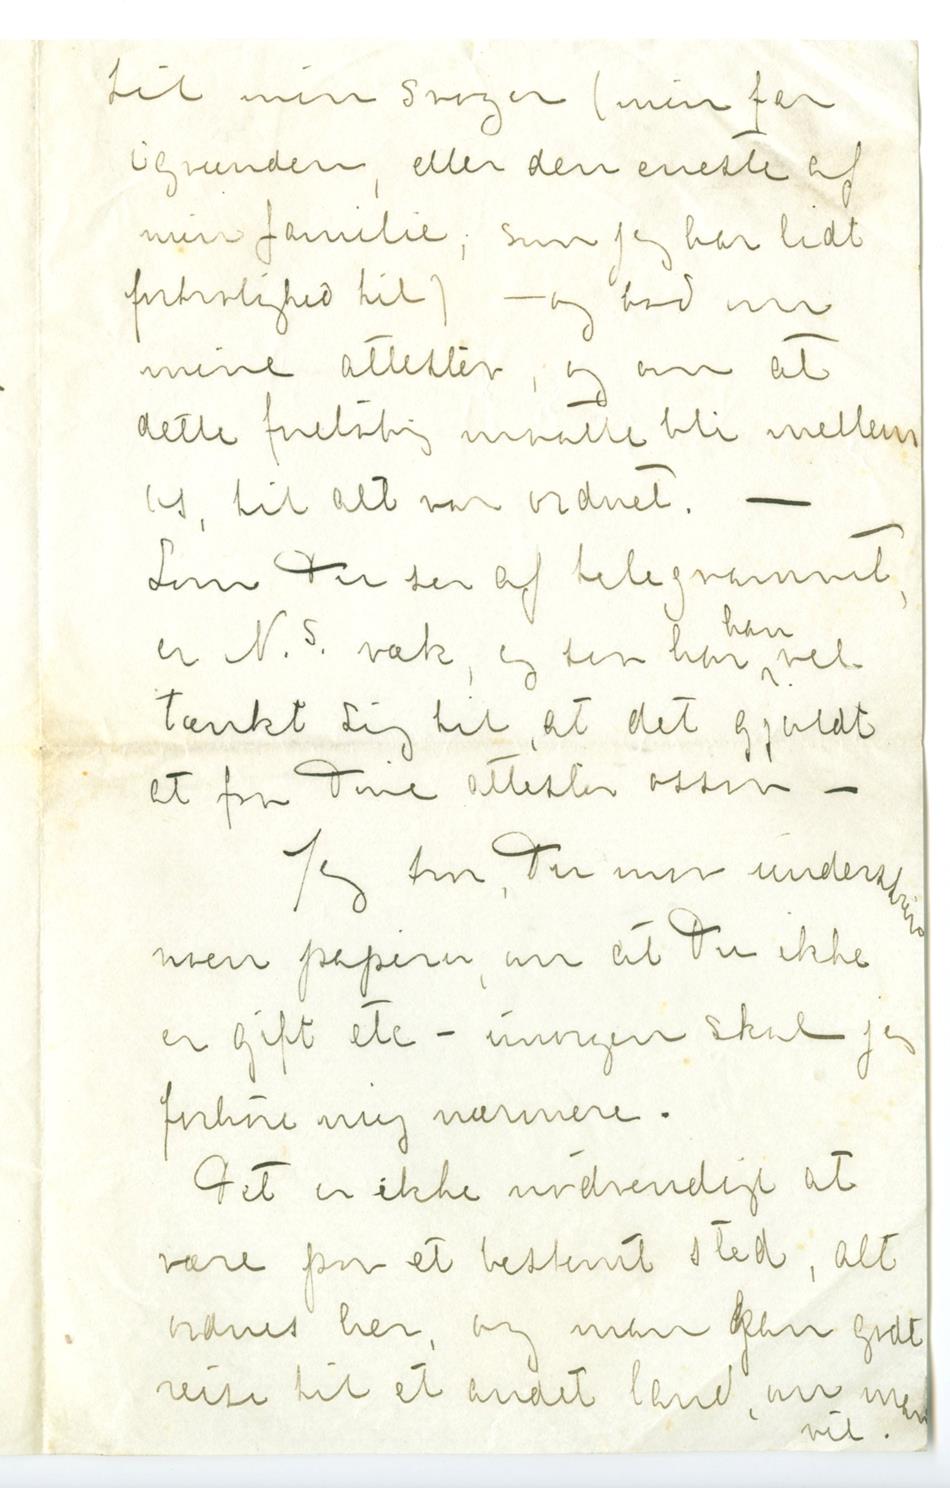 til min svoger (min far
igrunden, eller den eneste af
min familie, som jeg har lidt
fortrolighed til) – og bad om
mine attester, og om at
dette foreløbig maatte bli mellem
os, til alt var ordnet. —
Som Du ser af telegrammet,
er N.S. væk, og saa har han vel
tænkt sig til, at det gjaldt
at faa Dine attester ossaa –
Jeg tror, Du maa underskrive
noen papirer, om at Du ikke
er gift etc – imorgen skal jeg
forhøre mig nærmere.
Det er ikke nødvendigt at
være paa et bestemt sted, alt
ordnes her, og man kan godt
reise til et andet land, om man
vil.